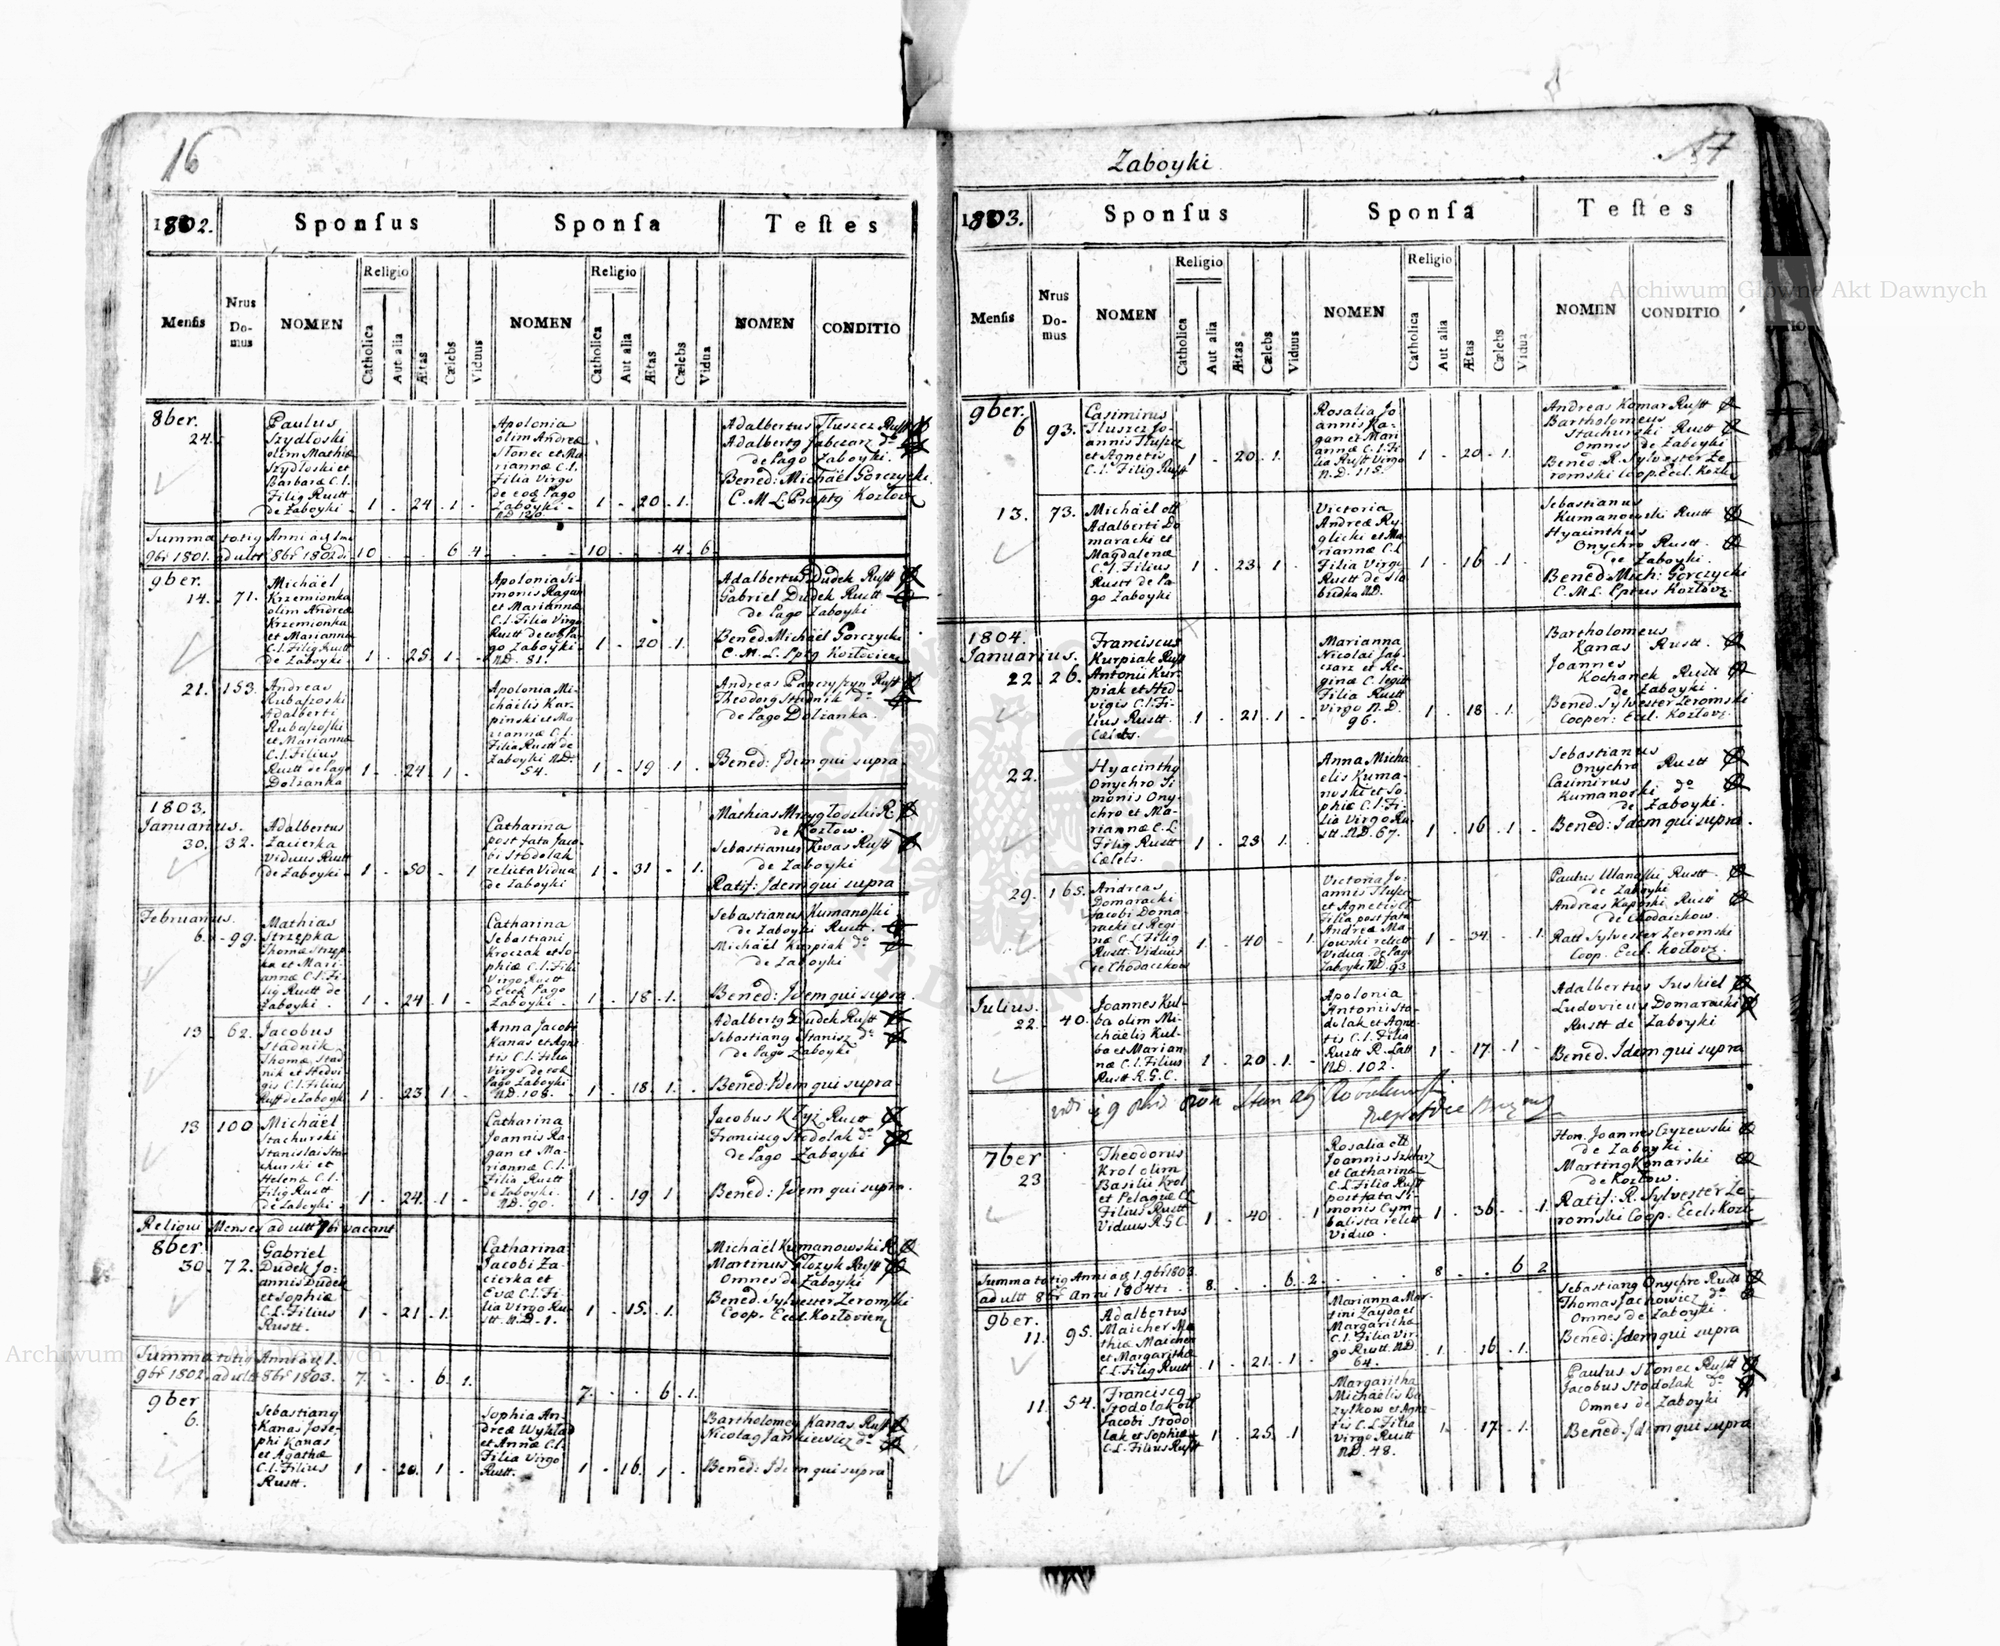 16
1802.
Sponſus
Sponſa
Teſtes
Menſis
Nrus Do-mus
NOMEN
Religio
Catholica
Aut alia
Ætas
Cælebs
Viduus
NOMEN
Religio
Catholica
Aut alia
Ætas
Cælebs
Vidua
NOMEN
CONDITIO
8ber.
24.
Paulus
Szydłoski
olim Mathiæ
Szydłoski et
Barbaræ C. l.
Filig Rustt
de Zaboyki
1 - 24 - 1 -
Apolonia
olim Andreæ
Słonec et Ma
riannæ C. l.
Filia Virgo
de eod Pago
Zaboyki -
1 - 20 - 1.
Adalbertus Tluszcz Rustt
Adalbertg Jabczarz do
de Pago Zaboyki.
Bened: Michaël Gorczycki
Summa totig Anni
9br 1801. ad ultt 8br 1802di 10 - - - 6 4 - - - 10 - - - 4 - 6
9ber.
14. 71.
Michaël
Krzemionka
olim Andreæ
Krzemionka
et Mariannæ
C. l. Filig Rustt
de Zaboyki
1 - 25 - 1 -
Apolonia Si-
monis Ragan
et Mariannæ
C. l. Filia Virgo
Rustt de eod Pa-
go Zaboyki -
ND. 81.
1 - 20 - 1.
Adalbertus Dudek Rustt
Gabriel Dudek Rustt
de Pago Zaboyki
Bened: Michaël Gorczycki
21. 153.
Andreas
Rubaszoski
Adalberti
Rubaszoski
et Mariannæ
C. l. Filius
Rustt de Pago
Dolzanka
1 - 24 - 1 -
Apolonia Mi-
chaëlis Kar-
pinski et Ma
riannæ C. l.
Filia Rustt de
Zaboyki ND.
54.
1 - 19 - 1.
Andreas Panczyszyn Rustt
Theodorg Studnik do
de Pago Dolzanka.
Bened: Idem qui supra
1803.
Januarius.
30. 32.
Adalbertus
Zacierka
Viduus Rustt
de Zaboyki
1 - 50 - 1
Catharina
post fata Jaco-
bi Stodolak
relicta Vidua
de Zaboyki
1 - 31 - 1.
Mathias Mrzyglodzki R
de Kozłow.
Sebastianus Kwas Rustt
de Zaboyki
Ratif: Idem qui supra
Februarius.
6. - 99.
Mathias
Strzepka
Thomæ Strzep-
ka et Mari
annæ C. l. Fi-
lig Rustt de
Zaboyki
1 - 24 - 1 -
Catharina
Sebastiani
Kroczak et So-
phiæ C. l. Filia
Virgo Rustt
de eod Pago
Zaboyki -
1 - 18 - 1.
Sebastianus Kumanoski
de Zaboyki Rustt.
Michaël Kurpiak do
de Zaboyki
Bened: Idem qui supra
13 62.
Jacobus
Stadnik
Thomæ Stad
nik et Hedvi-
gis C. l. Filius
Rustt de Zaboyki
1 - 23 - 1 -
Anna Jacobi
Kanas et Agne-
tis C. l. Filia
Virgo de eod
Pago Zaboyki
ND. 108.
1 - 18 - 1.
Adalbertg Dudek Rustt
Sebastiang Stanisz do
de Pago Zaboyki
Bened: Idem qui supra
13 100
Michaël
Stachurski
Stanislai Sta-
churski et
Helenæ C. l.
Filig Rustt
de Zaboyki
1 - 24 - 1 -
Catharina
Joannis Ra-
gan et Ma-
riannæ C. l.
Filia Rustt
de Zaboyki.
ND. 90.
1 - 19 - 1
Jacobus Kłyż Rustt
Franciscg Stodolak do
de Pago Zaboyki
Bened: Idem qui supra.
Reliqui Menses ad ultt 7bi vacant
8ber
30. 72.
Gabriel
Dudek Jo-
annis Dudek
et Sophiæ
C. l. Filius
Rustt.
1 - 21 - 1.
Catharina
Jacobi Za-
cierka et
Evæ C. l. Fi-
lia Virgo Ru-
stt. N.D. 1.
1 - 15 - 1.
Michaël Kumanowski R
Martinus Glozyk Rustt
Omnes de Zaboyki
Bened. Sylvester Zeromski
Coop. Eccl. Kozłovien
Summa totig Anni a 1.
9br 1802. ad ultt 8br 1803. 7 - - - 6. 1. 7. - - 6 - 1.
9ber
6.
Sebastiang
Kanas Jose-
phi Kanas
et Agathæ
C. l. Filius
Rustt.
1 - 20 - 1 -
Sophia An-
dreæ Wyklad
et Annæ C. l.
Filia Virgo
Rustt.
1 - 16. 1 -
Bartholomeg Kanas Rustt
Nicolag Jankiewicz do
Bened: Idem qui supra
Zaboyki
17
1803.
Sponſus
Sponſa
Teſtes
Menſis
Nrus Do-mus
NOMEN
Religio
Catholica
Aut alia
Ætas
Cælebs
Viduus
NOMEN
Religio
Catholica
Aut alia
Ætas
Cælebs
Vidua
NOMEN
CONDITIO
9ber.
6 93.
Casimirus
Tluszcz Jo-
annis Tluszcz
et Agnetis
C. l. Filig Rustt
1 - 20 - 1.
Rosalia Jo
annis Ra-
gan et Mari
annæ C. l. Fi-
lia Rustt Virgo
N. D. 115.
1 - 20 - 1.
Andreas Komar Rustt
Bartholomeus
Stachurski Rustt
Omnes de Zaboyki
Bened. R. Sylvester Ze-
romski Coop. Eccl. Kozło
13. 73.
Michaël ott
Adalberti Do
maracki et
Magdalenæ
C. l. Filius
Rustt de Pa-
go Zaboyki
1 - 23 - 1 -
Victoria
Andreæ Ry-
glicki et Ma
riannæ C. l.
Filia Virgo
Rustt de Slo
budka ND.
1 - 16 - 1
Sebastianus
Kumanowski Rustt
Hyacinthus
Onychro Rustt.
de Zaboyki.
Bened. Mich: Gorczycki
1804.
Januarius.
22. 26.
Franciscus
Kurpiak Rustt
Antonii Kur-
piak et Hed-
vigis C. l. Fi-
lius Rustt.
Cælebs.
1 - 21 - 1 -
Marianna
Nicolai Jab-
czarz et Re-
ginæ C. legitt
Filia Rustt
Virgo N. D.
96.
1 - 18 - 1.
Bartholomeus
Kanas Rustt.
Joannes
Kochanek Rustt
de Zaboyki.
Bened. Sylvester Zeromski
Cooper: Eccl. Kozlov.
22.
Hyacinthg
Onychro Si
monis Ony-
chro et Ma-
riannæ C. l.
Filig Rustt
Cælebs.
1 - 23 - 1.
Anna Micha
elis Kuma-
noski et So-
phiæ C. l. Fi-
lia Virgo Ru-
stt. N.D. 67.
1 - 16 - 1.
Sebastianus
Onychro Rustt
Casimirus
Kumanoski do
de Zaboyki.
Bened: Idem qui supra.
29. 165.
Andreas
Domaracki
Jacobi Doma
racki et Regi
næ C. l. Filig
Rustt. Viduus
de Chodaczkow
1. - 40 - 1.
Victoria Jo-
annis Tlusz
et Agnetis C. l.
Filia post fata
Andreæ Ma-
jowski relict
Vidua de Pago
Zaboyki N.D. 93
1 - 34 - 1.
Paulus Ulanoski Rustt.
de Zaboyki
Andreas Kaporski Rustt
de Chodaczkow.
Ratt Sylvester Zeromski
Coop. Eccl. Kozlov.
Julius.
22. 40.
Joannes Kul-
ba olim Mi-
chaëlis Kul-
ba et Marian
næ C. l. Filius
Rustt R. G. C.
1 - 20 - 1. -
Apolonia
Antonii Sto-
dolak et Agne-
tis C. l. Filia
Rustt R. Latt
N.D. 102.
1 - 17 - 1 -
Adalbertus Suskiel
Ludovicus Domaracki
Rustt de Zaboyki
Bened. Idem qui supra
7ber
23
Theodorus
Krol olim
Basilii Krol
et Pelagiæ C. l.
Filius Rustt
Viduus R.G.C.
1 - 40 - 1
Rosalia ott
Joannis
et Catharinæ
C. l. Filia Rustt
post fata Si-
monis Cym
balista relict
Vidua.
1 - 36 - 1.
Hon. Joannes Czyzewski
de Zaboyki.
Marting Konarski
de Kozłow.
Ratif: R. Sylvester Ze-
romski Coop. Eccl. Kozl.
Summa totig Anni a 1. 9br 1803.
ad ultt 8br Anni 1804ti. 8. - - 6 - 2 - - - 8 - - 6 2
9ber.
11. 95.
Adalbertus
Maicher Ma
thiæ Maicher
et Margarithæ
C. l. Filig Rustt
1 - 21. - 1 -
Marianna Mar
tini Zayda et
Margarithæ
C. l. Filia Vir-
go Rustt N.D.
64.
1 - 16 - 1.
Sebastiang Onychre Rustt
Thomas Jachowicz do
Omnes de Zaboyki.
Bened: Idem qui supra
11. 54.
Franciscg
Stodolak ott
Jacobi Stodo
lak et Sophiæ
C. l. Filius Rustt
1 - 25 - 1
Margaritha
Michaëlis Ba
zylkow et Agne
tis C. l. Filia
Virgo Rustt
N.D. 48.
1 - 17 - 1.
Paulus Słonec Rustt
Jacobus Stodolak do
Omnes de Zaboyki
Bened: Idem qui supra
Archiwum Główne Akt Dawnych
Archiwum Główne Akt Dawnych